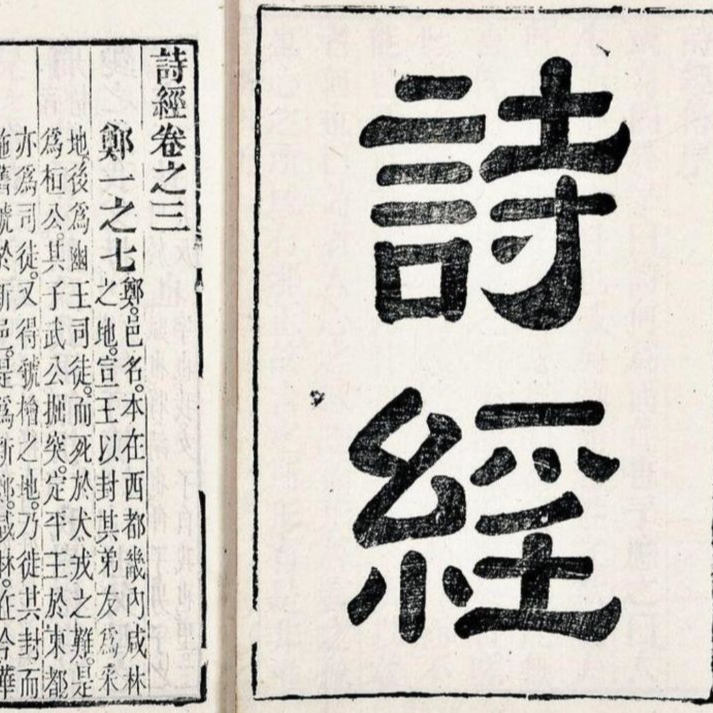 詩經
詩經卷之三
鄭一之七 鄭。邑名。本在西都畿內咸林
之地。宣王以封其弟友爲采
地。後爲幽王司徒。而死於犬戎之難。是
爲桓公。其子武公掘突。定平王於東都
亦爲司徒。又得虢檜之地。乃徙其封而
施舊號於新邑。是爲新鄭。咸林。在今華